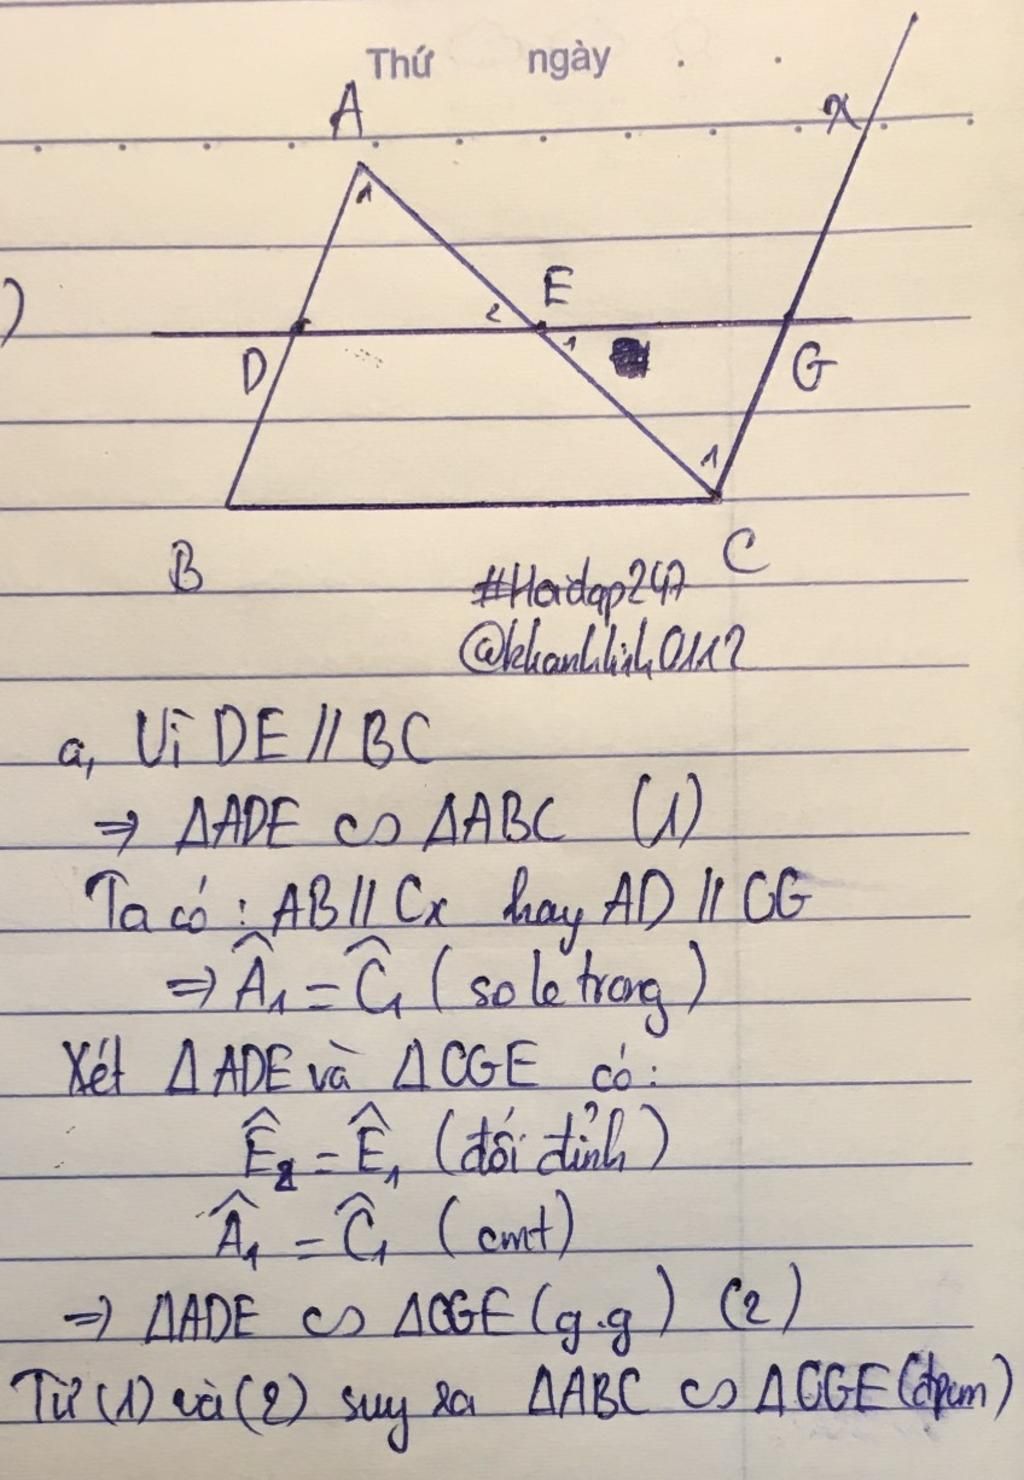 Thứ ngày
A
x
)
1
E
2
1
D
G
1
B
C
#Hoidap247
@khanhlinh0112
a, Vì DE // BC
⇒ ΔADE ∽ ΔABC (1)
Ta có : AB // Cx hay AD // CG
⇒ Â₁ = Ĉ₁ ( so le trong )
Xét ΔADE và ΔCGE có :
Ê₂ = Ê₁ (đối đỉnh )
Â₁ = Ĉ₁ ( cmt )
⇒ ΔADE ∽ ΔCGE ( g.g ) (2)
Từ (1) và (2) suy ra ΔABC ∽ ΔCGE (đpcm)